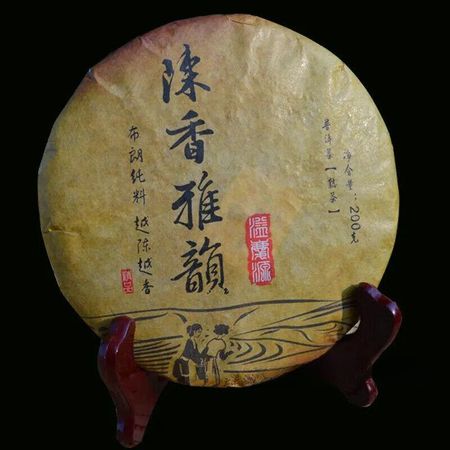 净含量：200克
普洱茶【熟茶】
陈香雅韻
布朗纯料 越陈越香